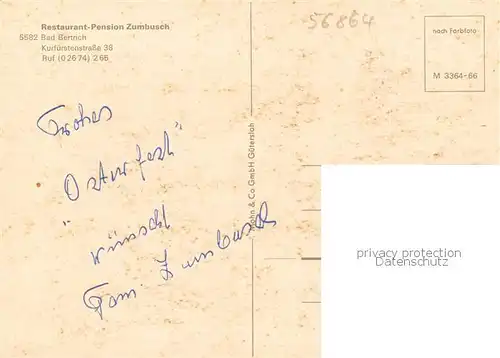 Restaurant-Pension Zumbusch
5582 Bad Bertrich
Kurfürstenstraße 38
Ruf (0 26 74) 2 66
56864
nach Farbfoto
M 3364-66
Frohes
Osterfest"
" wünscht
Fam. Zumbusch
& Co GmbH Gütersloh
privacy protection
Datenschutz